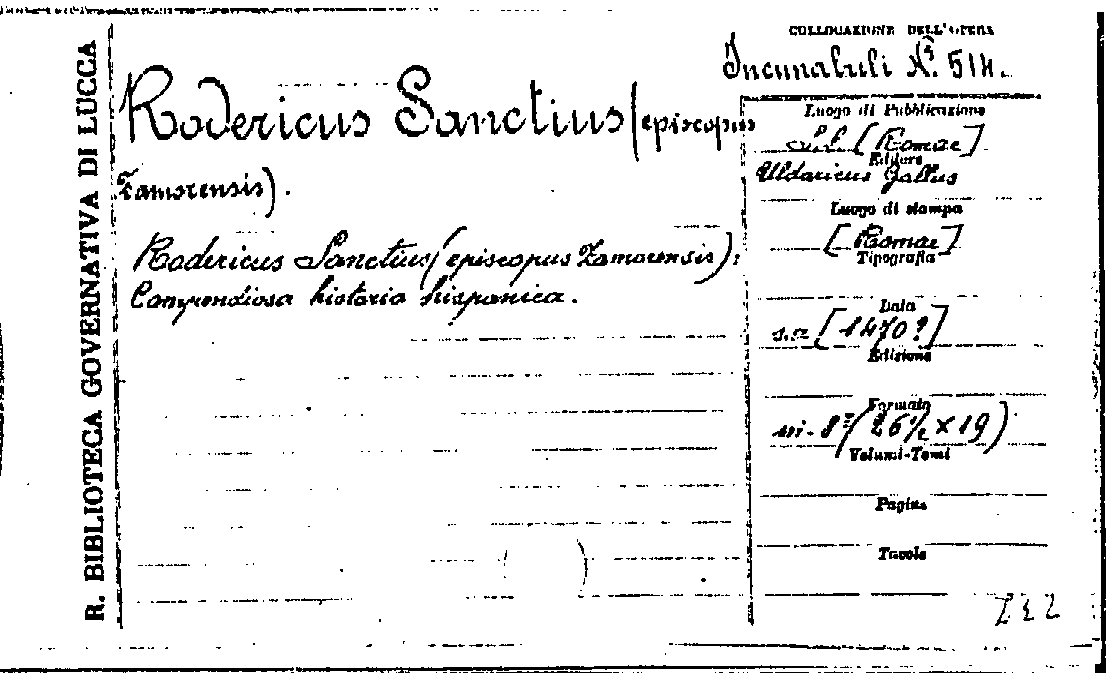 R. BIBLIOTECA GOVERNATIVA DI LUCCA
Rodericus Sanctius (episcopus
Zamorensis).
Rodericus Sanctius (episcopus Zamorensis):
Compendiosa historia hispanica.
COLLOCAZIONE DELL'OPERA
Incunabuli N.º 514.
Luogo di Pubblicazione
s.l. [Romae]
Editore
Uldaricus Gallus
Luogo di stampa
[Romae]
Tipografia
Data
s.a. [1470?]
Edizione
Formato
in-8º (26½ × 19)
Volumi-Tomi
Pagine
Tavole